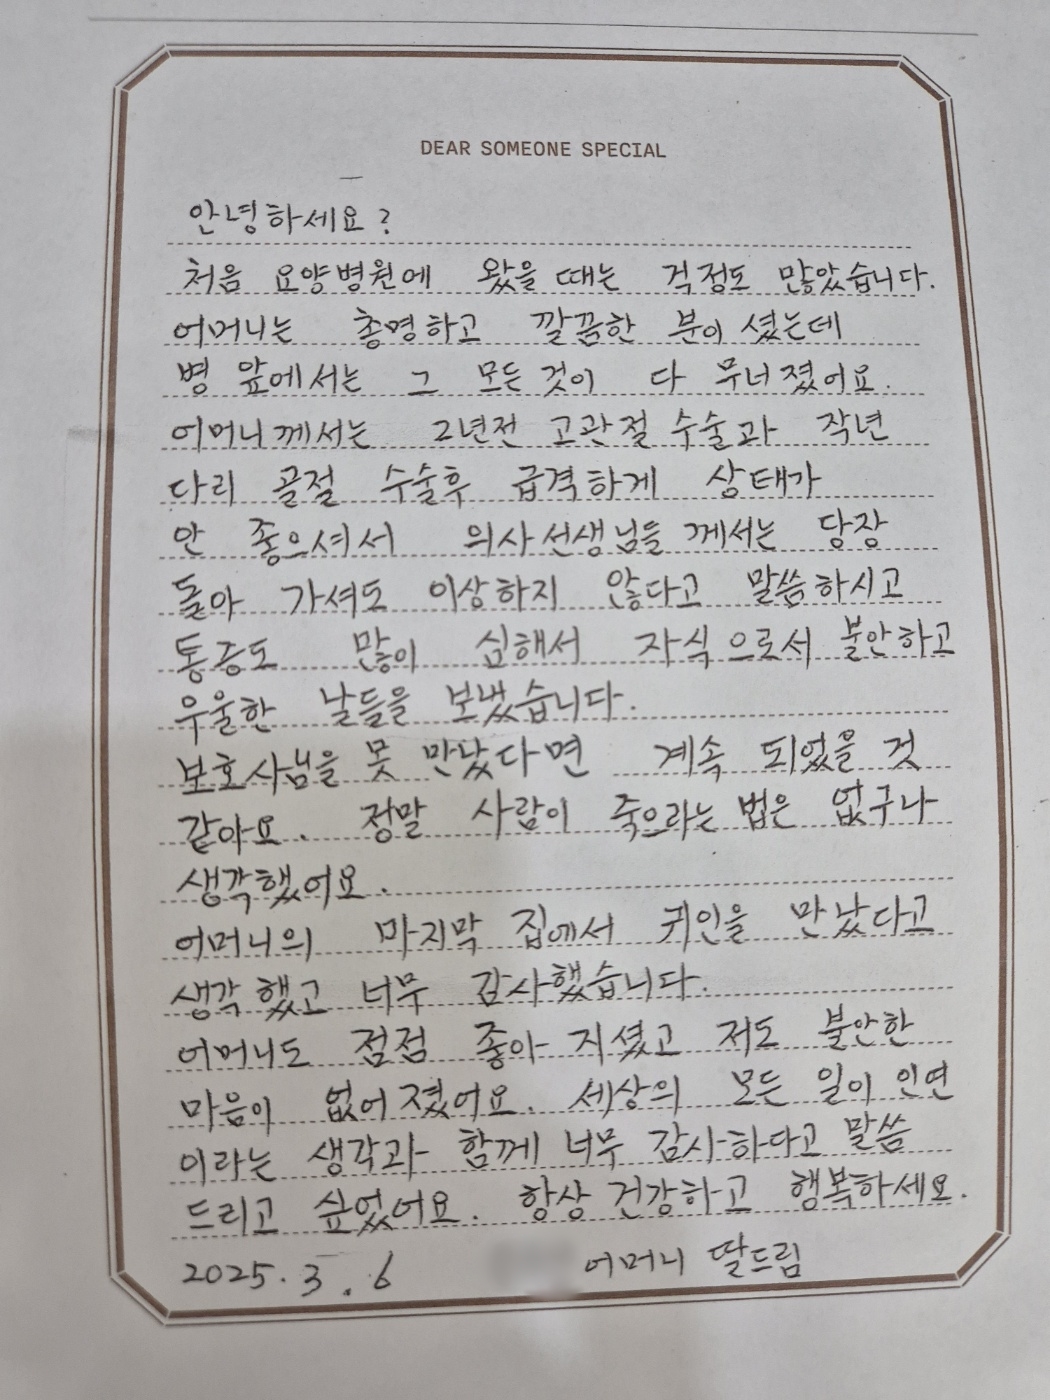 DEAR SOMEONE SPECIAL
안녕하세요?
처음 요양병원에 왔을때는 걱정도 많았습니다.
어머니는 총명하고 깔끔한 분이셨는데
병 앞에서는 그 모든것이 다 무너졌어요.
어머니께서는 2년전 고관절 수술과 작년
다리 골절 수술후 급격하게 상태가
안 좋으셔서 의사선생님들께서는 당장
돌아 가셔도 이상하지 않다고 말씀하시고
통증도 많이 심해서 자식으로서 불안하고
우울한 날들을 보냈습니다.
보호사님을 못 만났다면 계속 되었을 것
같아요. 정말 사람이 죽으라는 법은 없구나
생각했어요.
어머니의 마지막 집에서 귀인을 만났다고
생각했고 너무 감사했습니다.
어머니도 점점 좋아지셨고 저도 불안한
마음이 없어졌어요. 세상의 모든 일이 인연
이라는 생각과 함께 너무 감사하다고 말씀
드리고 싶었어요. 항상 건강하고 행복하세요.
2025. 3. 6 어머니 딸드림